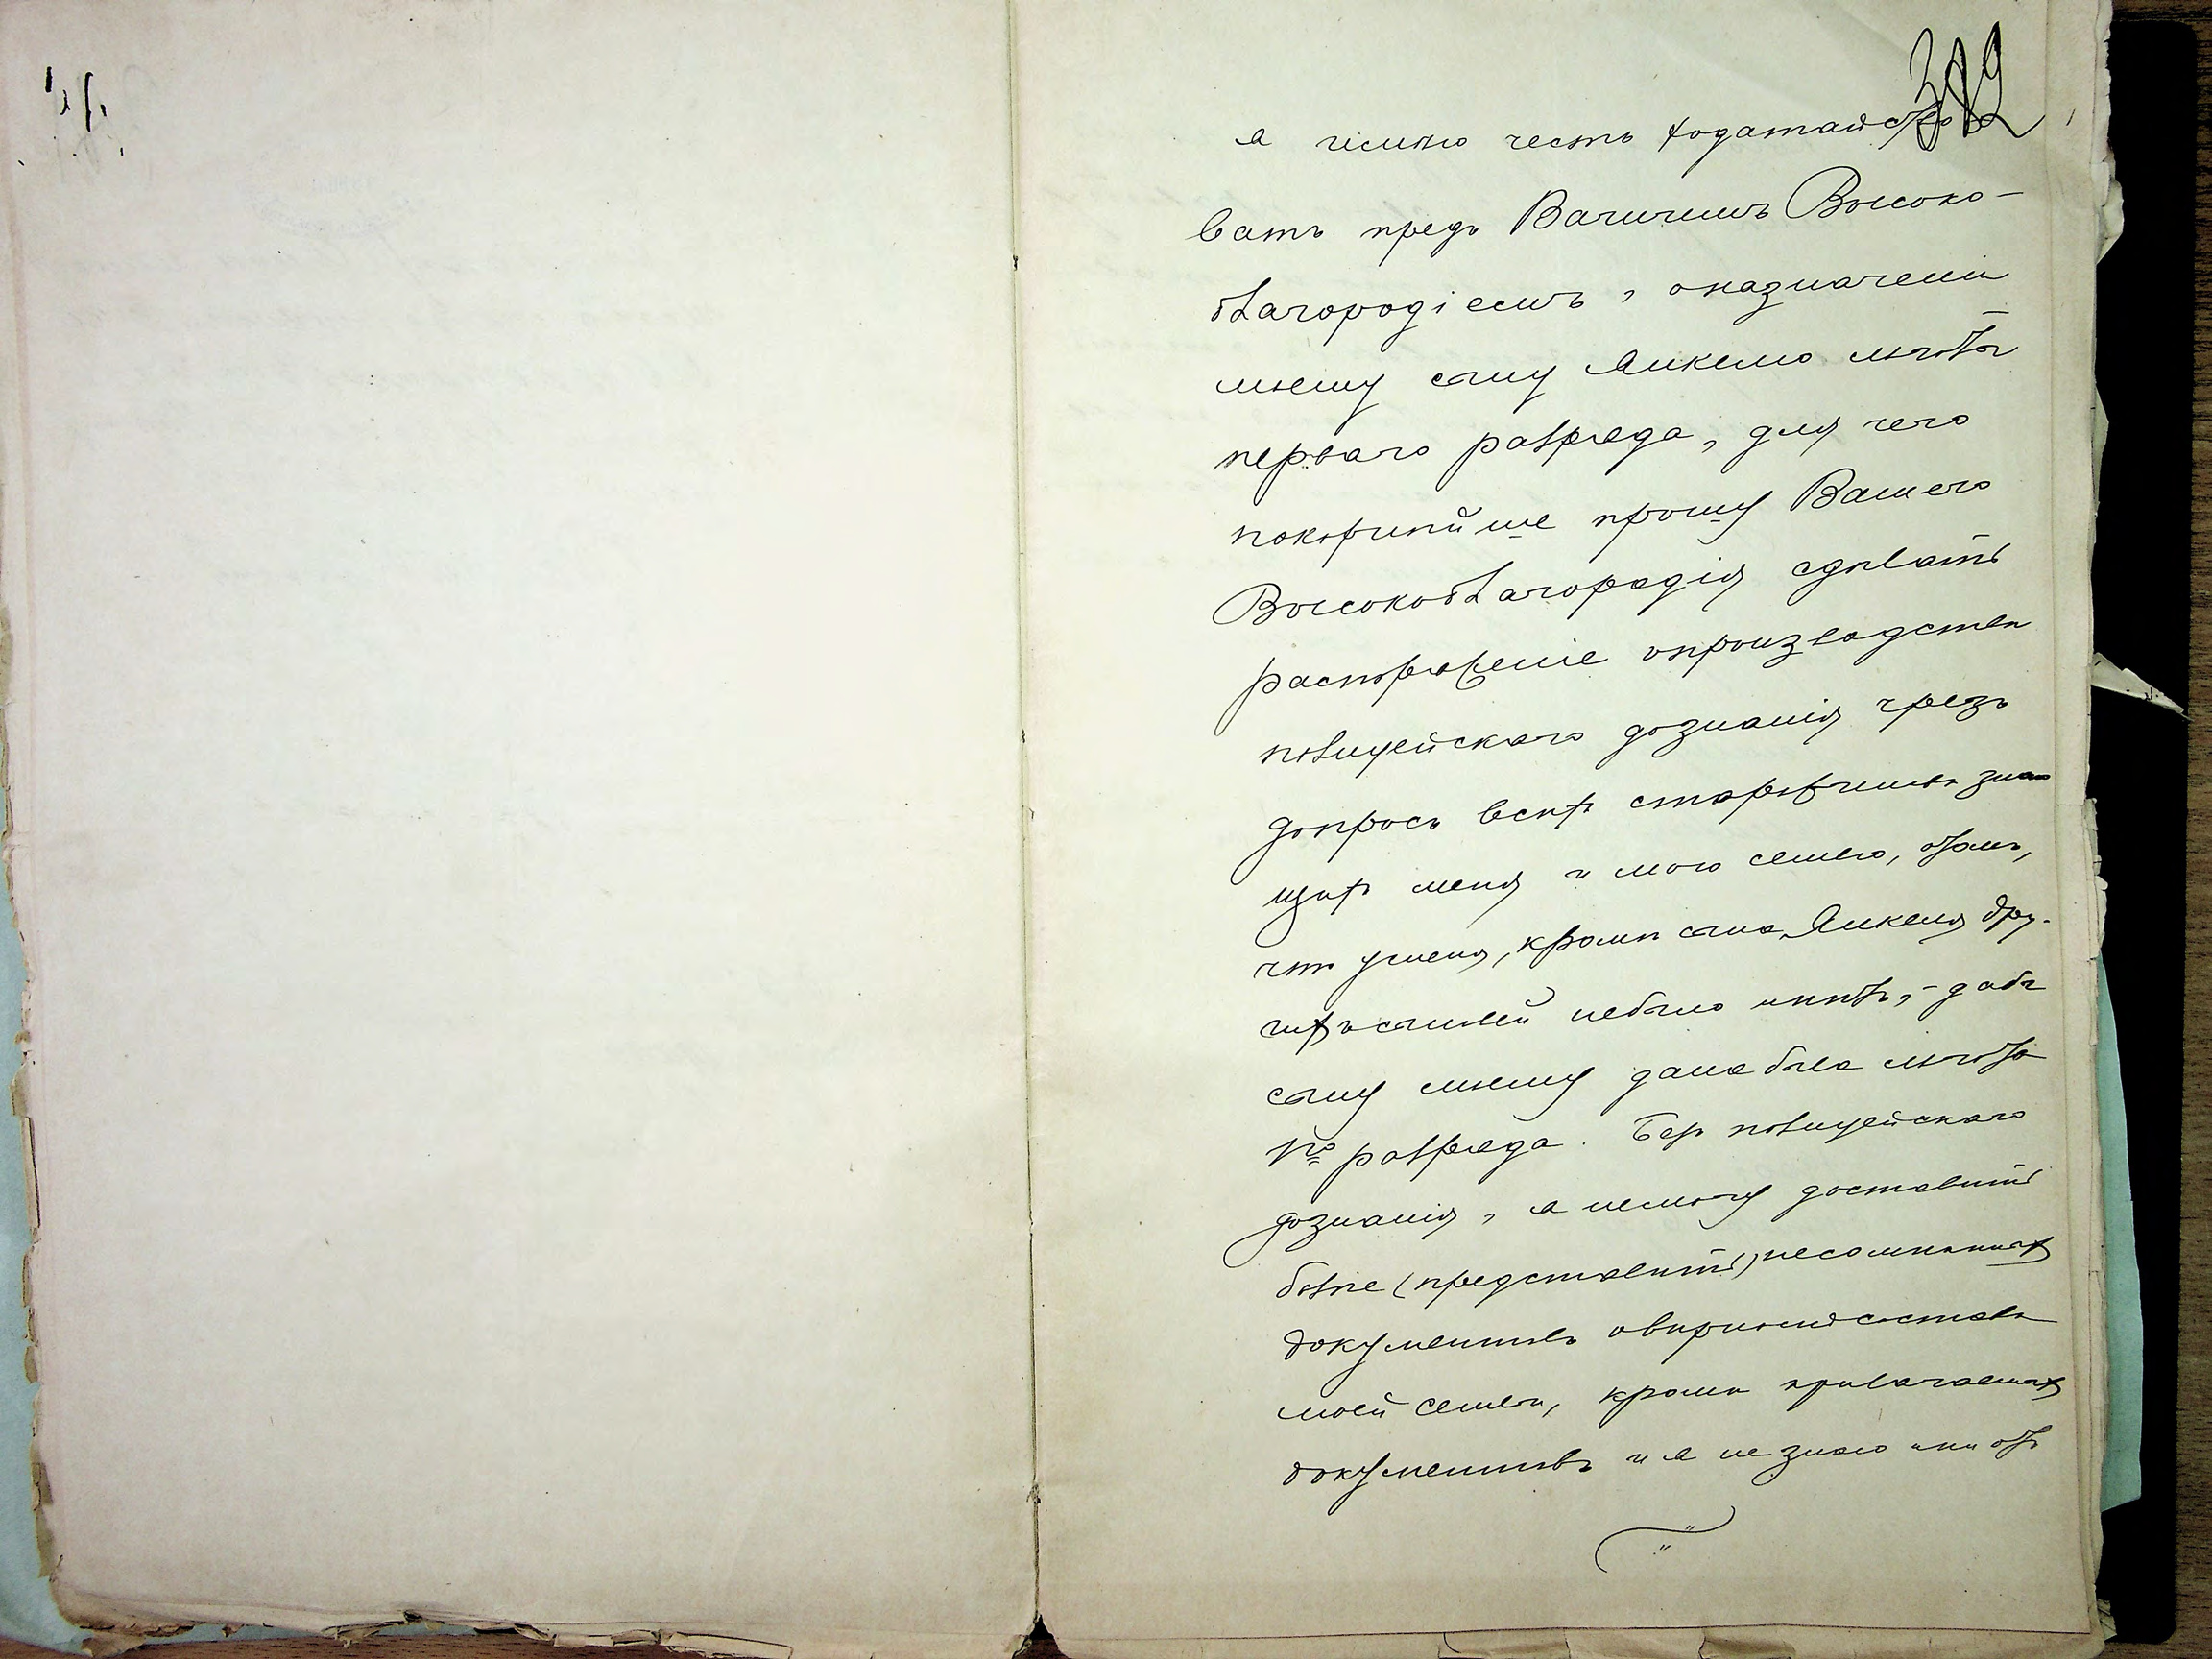 я имѣю честь ходатайство
вать предъ Вашимъ Высоко-
благородіемъ, о назначеніи
моему сыну Янкелю льготы
перваго разряда, для чего
покорнѣйше прошу Вашего
Высокоблагородія сдѣлать
распоряженіе о производствѣ
полицейскаго дознанія чрезъ
допросъ всѣхъ старожиловъ знаю
щихъ меня и мою семью, о томъ,
что у меня, кромѣ сына Янкеля дру-
гихъ сыновей не было и нѣтъ, - дабы
сыну моему дана была льгота
1го разряда. Безъ полицейскаго
дознанія, я не могу доставить
болѣе (представить) несомнѣнныхъ
документовъ о вѣрномъ составѣ
моей семьи, кромѣ прилагаемыхъ
документовъ и я не знаю